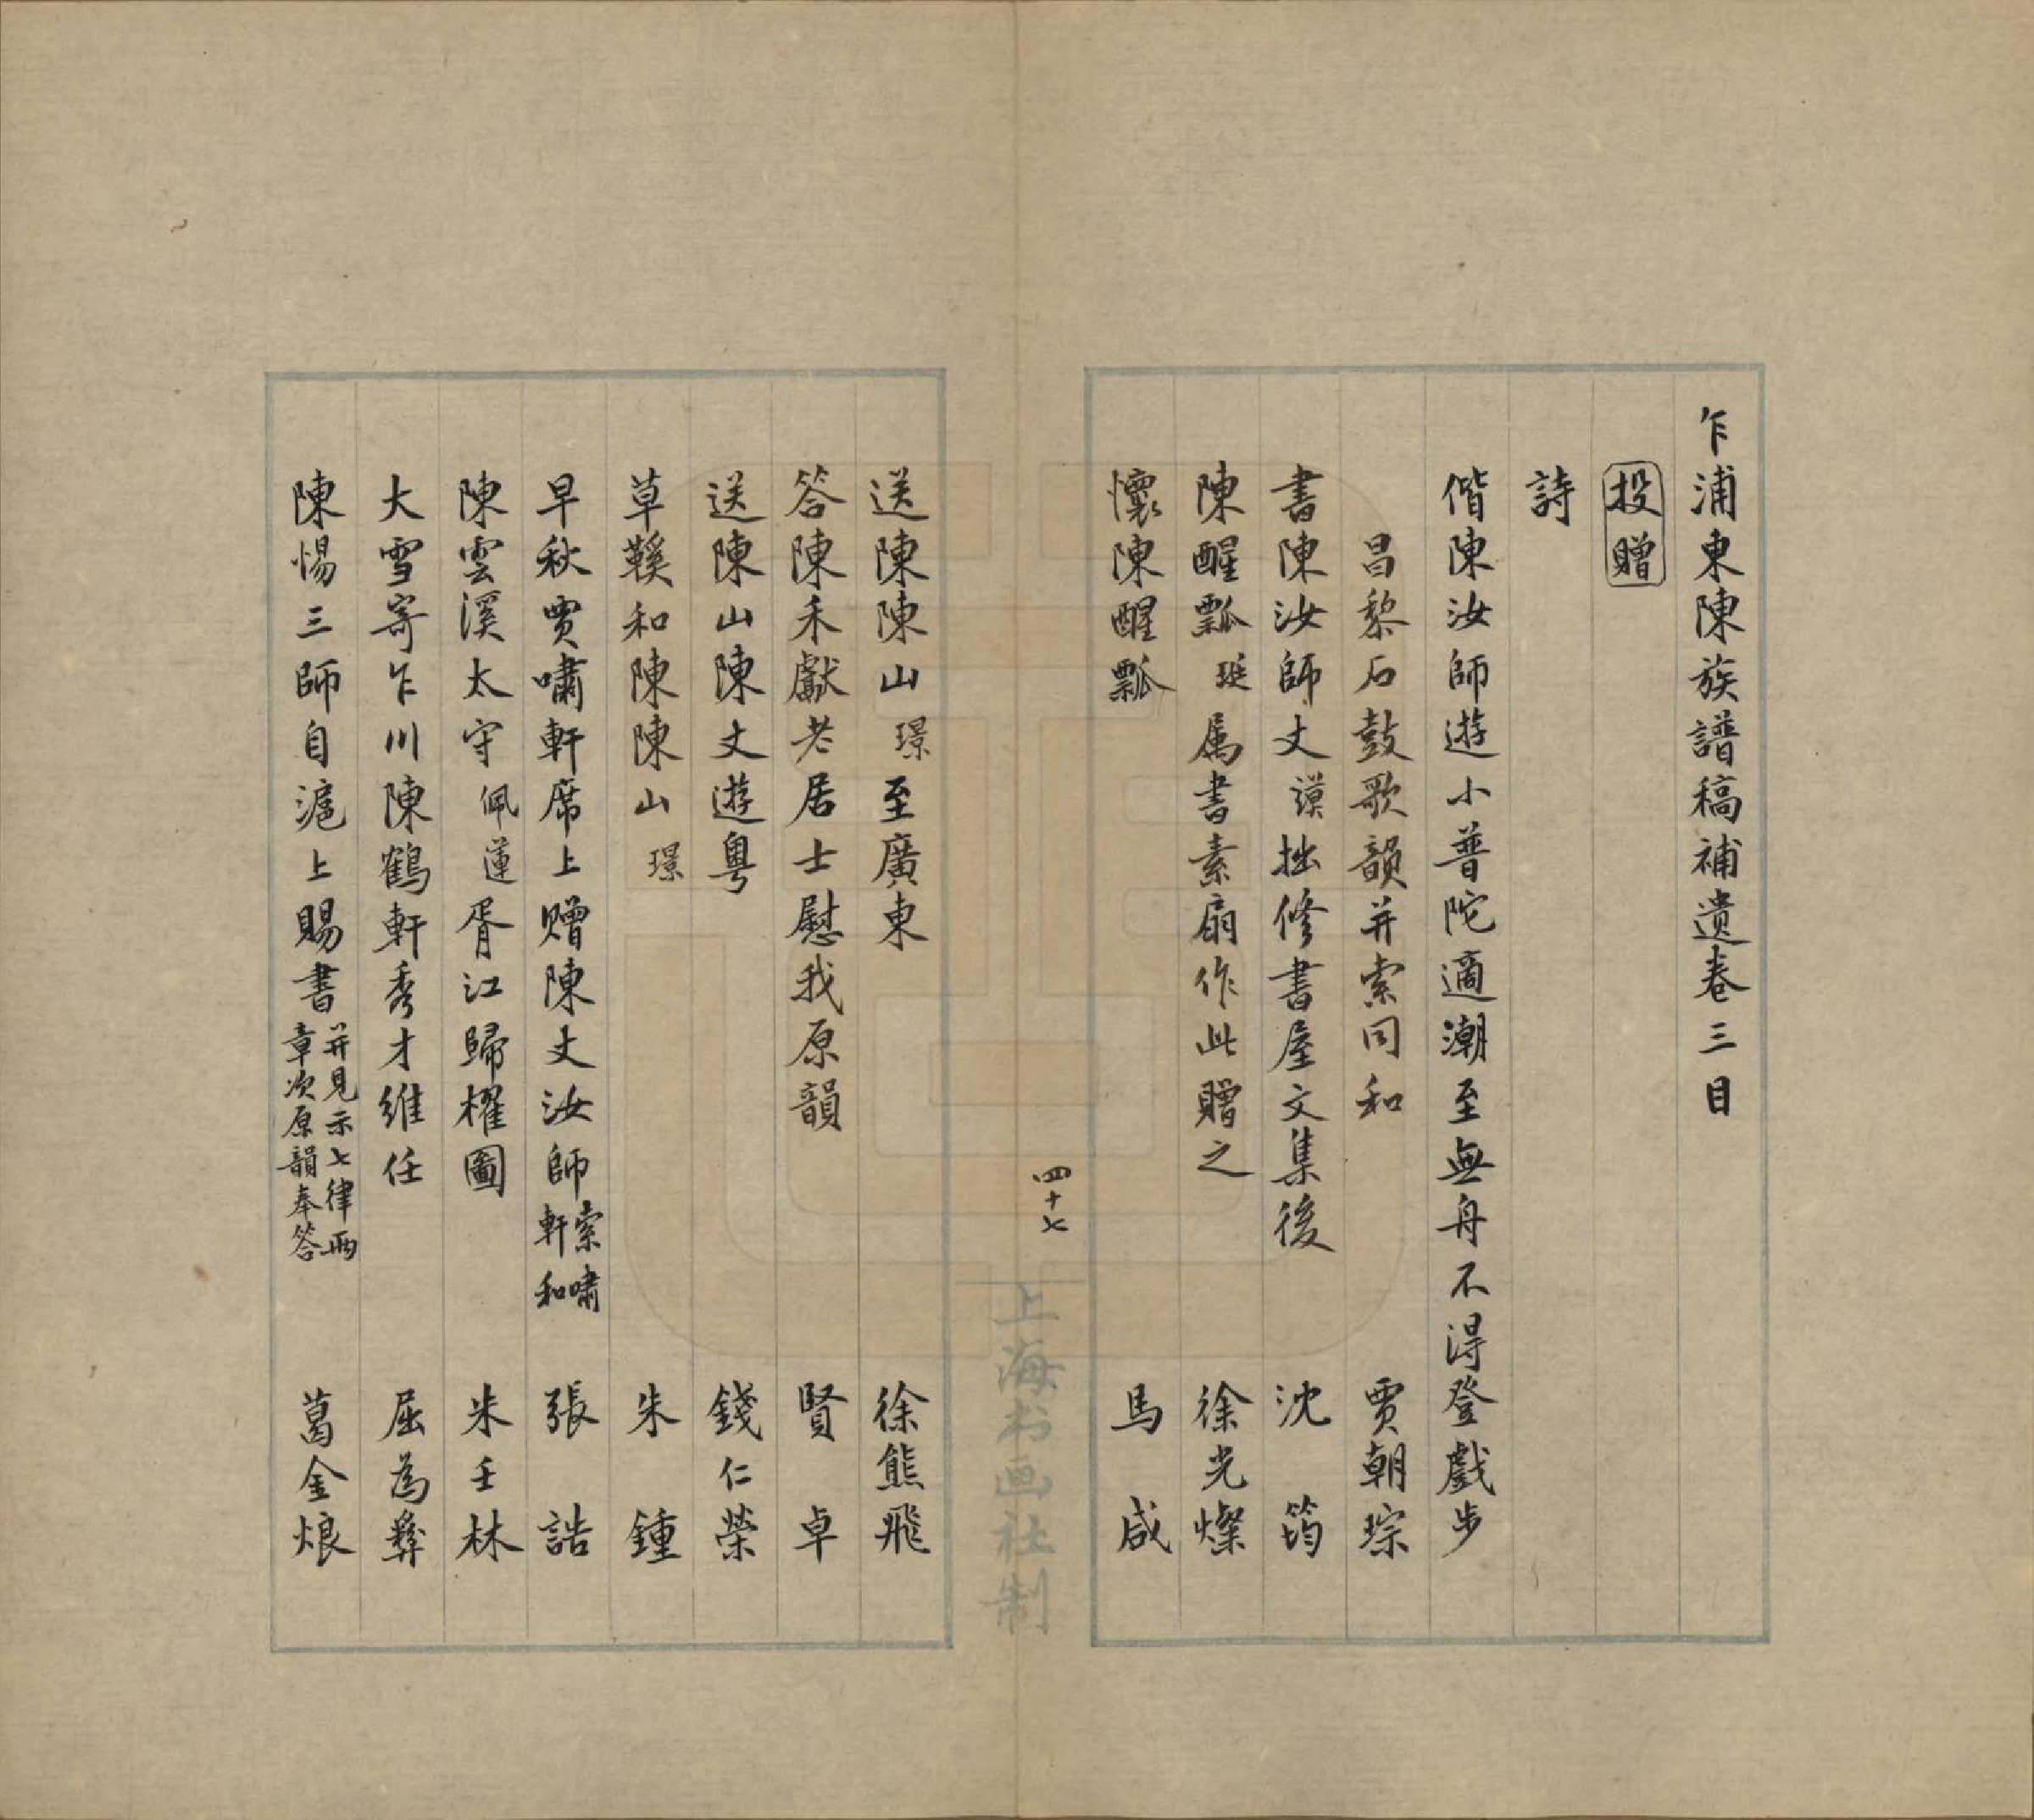 乍浦東陳族譜稿補遺卷三目
投贈
詩
偕陳汝師遊小普陀適潮至無舟不得登戲步
昌黎石鼓歌韻并索同和 賈朝琮
書陳汝師丈謨拙修書屋文集後 沈筠
陳醒瓢珽属書素扇作此贈之 徐光燦
懷陳醒瓢 馬咸
四十七
上海书画社制
送陳陳山璟至廣東 徐熊飛
答陳禾獻老居士慰我原韻 賢卓
送陳山陳丈遊粵 錢仁榮
草鞵和陳陳山璟 朱鍾
早秋賈嘯軒席上贈陳丈汝師索嘯軒和 張誥
陳雲溪太守佩蓮胥江歸櫂圖 朱壬林
大雪寄乍川陳鶴軒秀才維任 屈為彝
陳惕三師自滬上賜書并見示七律兩章次原韻奉答 葛金烺